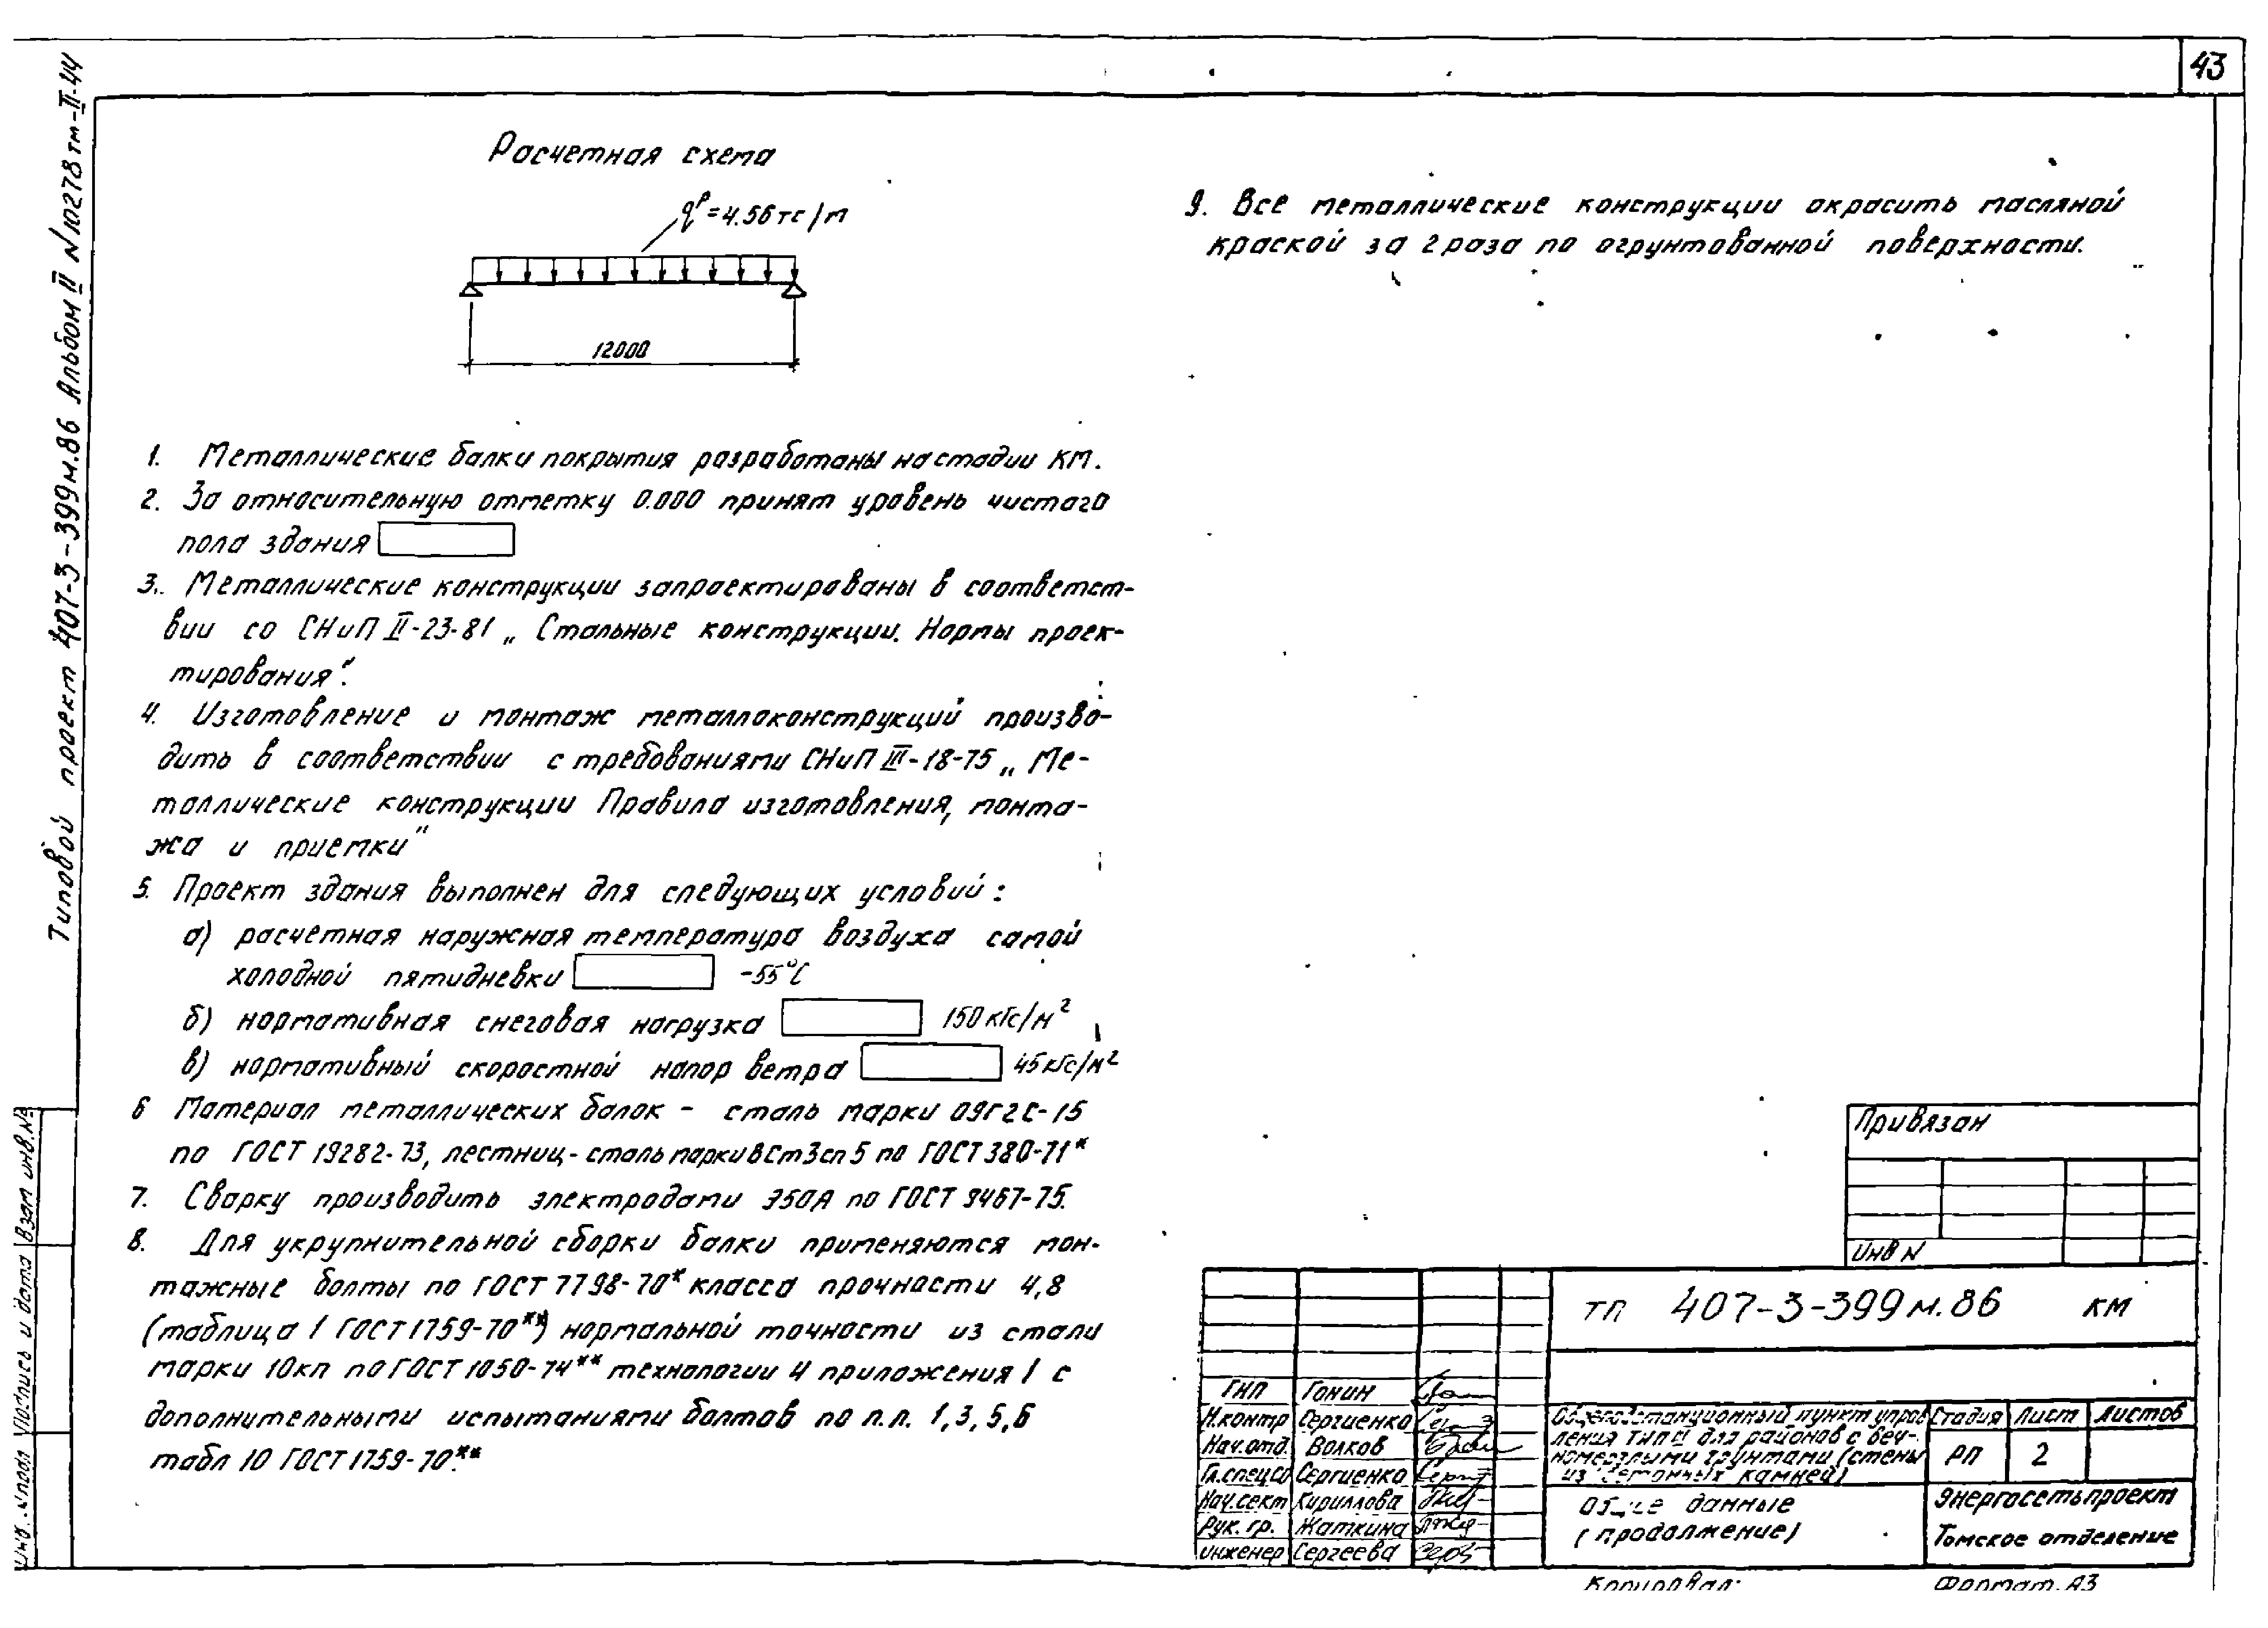 43
Типовой проект 407-3-399м.86 Альбом II N10278тм-II-44
Расчетная схема
qᵖ=4.56тс/м
12000
1. Металлические балки покрытия разработаны на стадии КМ.
2. За относительную отметку 0.000 принят уровень чистого
пола здания
3. Металлические конструкции запроектированы в соответст-
вии со СНиП II-23-81 „Стальные конструкции. Нормы проек-
тирования".
4. Изготовление и монтаж металлоконструкций произво-
дить в соответствии с требованиями СНиП III-18-75 „Ме-
таллические конструкции Правила изготовления, монта-
жа и приемки"
5. Проект здания выполнен для следующих условий:
а) расчетная наружная температура воздуха самой
холодной пятидневки -55°С
б) нормативная снеговая нагрузка 150кгс/м²
в) нормативный скоростной напор ветра 45кгс/м²
6 Материал металлических балок - сталь марки 09Г2С-15
по ГОСТ 19282-73, лестниц-сталь марки ВСт3сп5 по ГОСТ 380-71*
7. Сварку производить электродами Э50А по ГОСТ 9467-75.
8. Для укрупнительной сборки балки применяются мон-
тажные болты по ГОСТ 7798-70* класса прочности 4,8
(таблица 1 ГОСТ 1759-70**) нормальной точности из стали
марки 10кп по ГОСТ 1050-74** технологии 4 приложения 1 с
дополнительными испытаниями болтов по п.п. 1,3,5,6
табл 10 ГОСТ 1759-70**.
9. Все металлические конструкции окрасить масляной
краской за 2 раза по огрунтованной поверхности.
Привязан
Инв N
ТП 407-3-399м.86 КМ
ГИП Гонин
Н.контр Сергиенко
Нач.отд. Волков
Гл.спец.со Сергиенко
Нач.сект Кириллова
Рук. гр. Жаткина
инженер Сергеева
Общеподстанционный пункт управ
ления тип II для районов с веч-
номерзлыми грунтами (стены
из бетонных камней)
Стадия Лист Листов
РП 2
Общие данные
(продолжение)
Энергосетьпроект
Томское отделение
Копировал:
Формат. А3
Инв. N подл Подпись и дата Взам инв.N